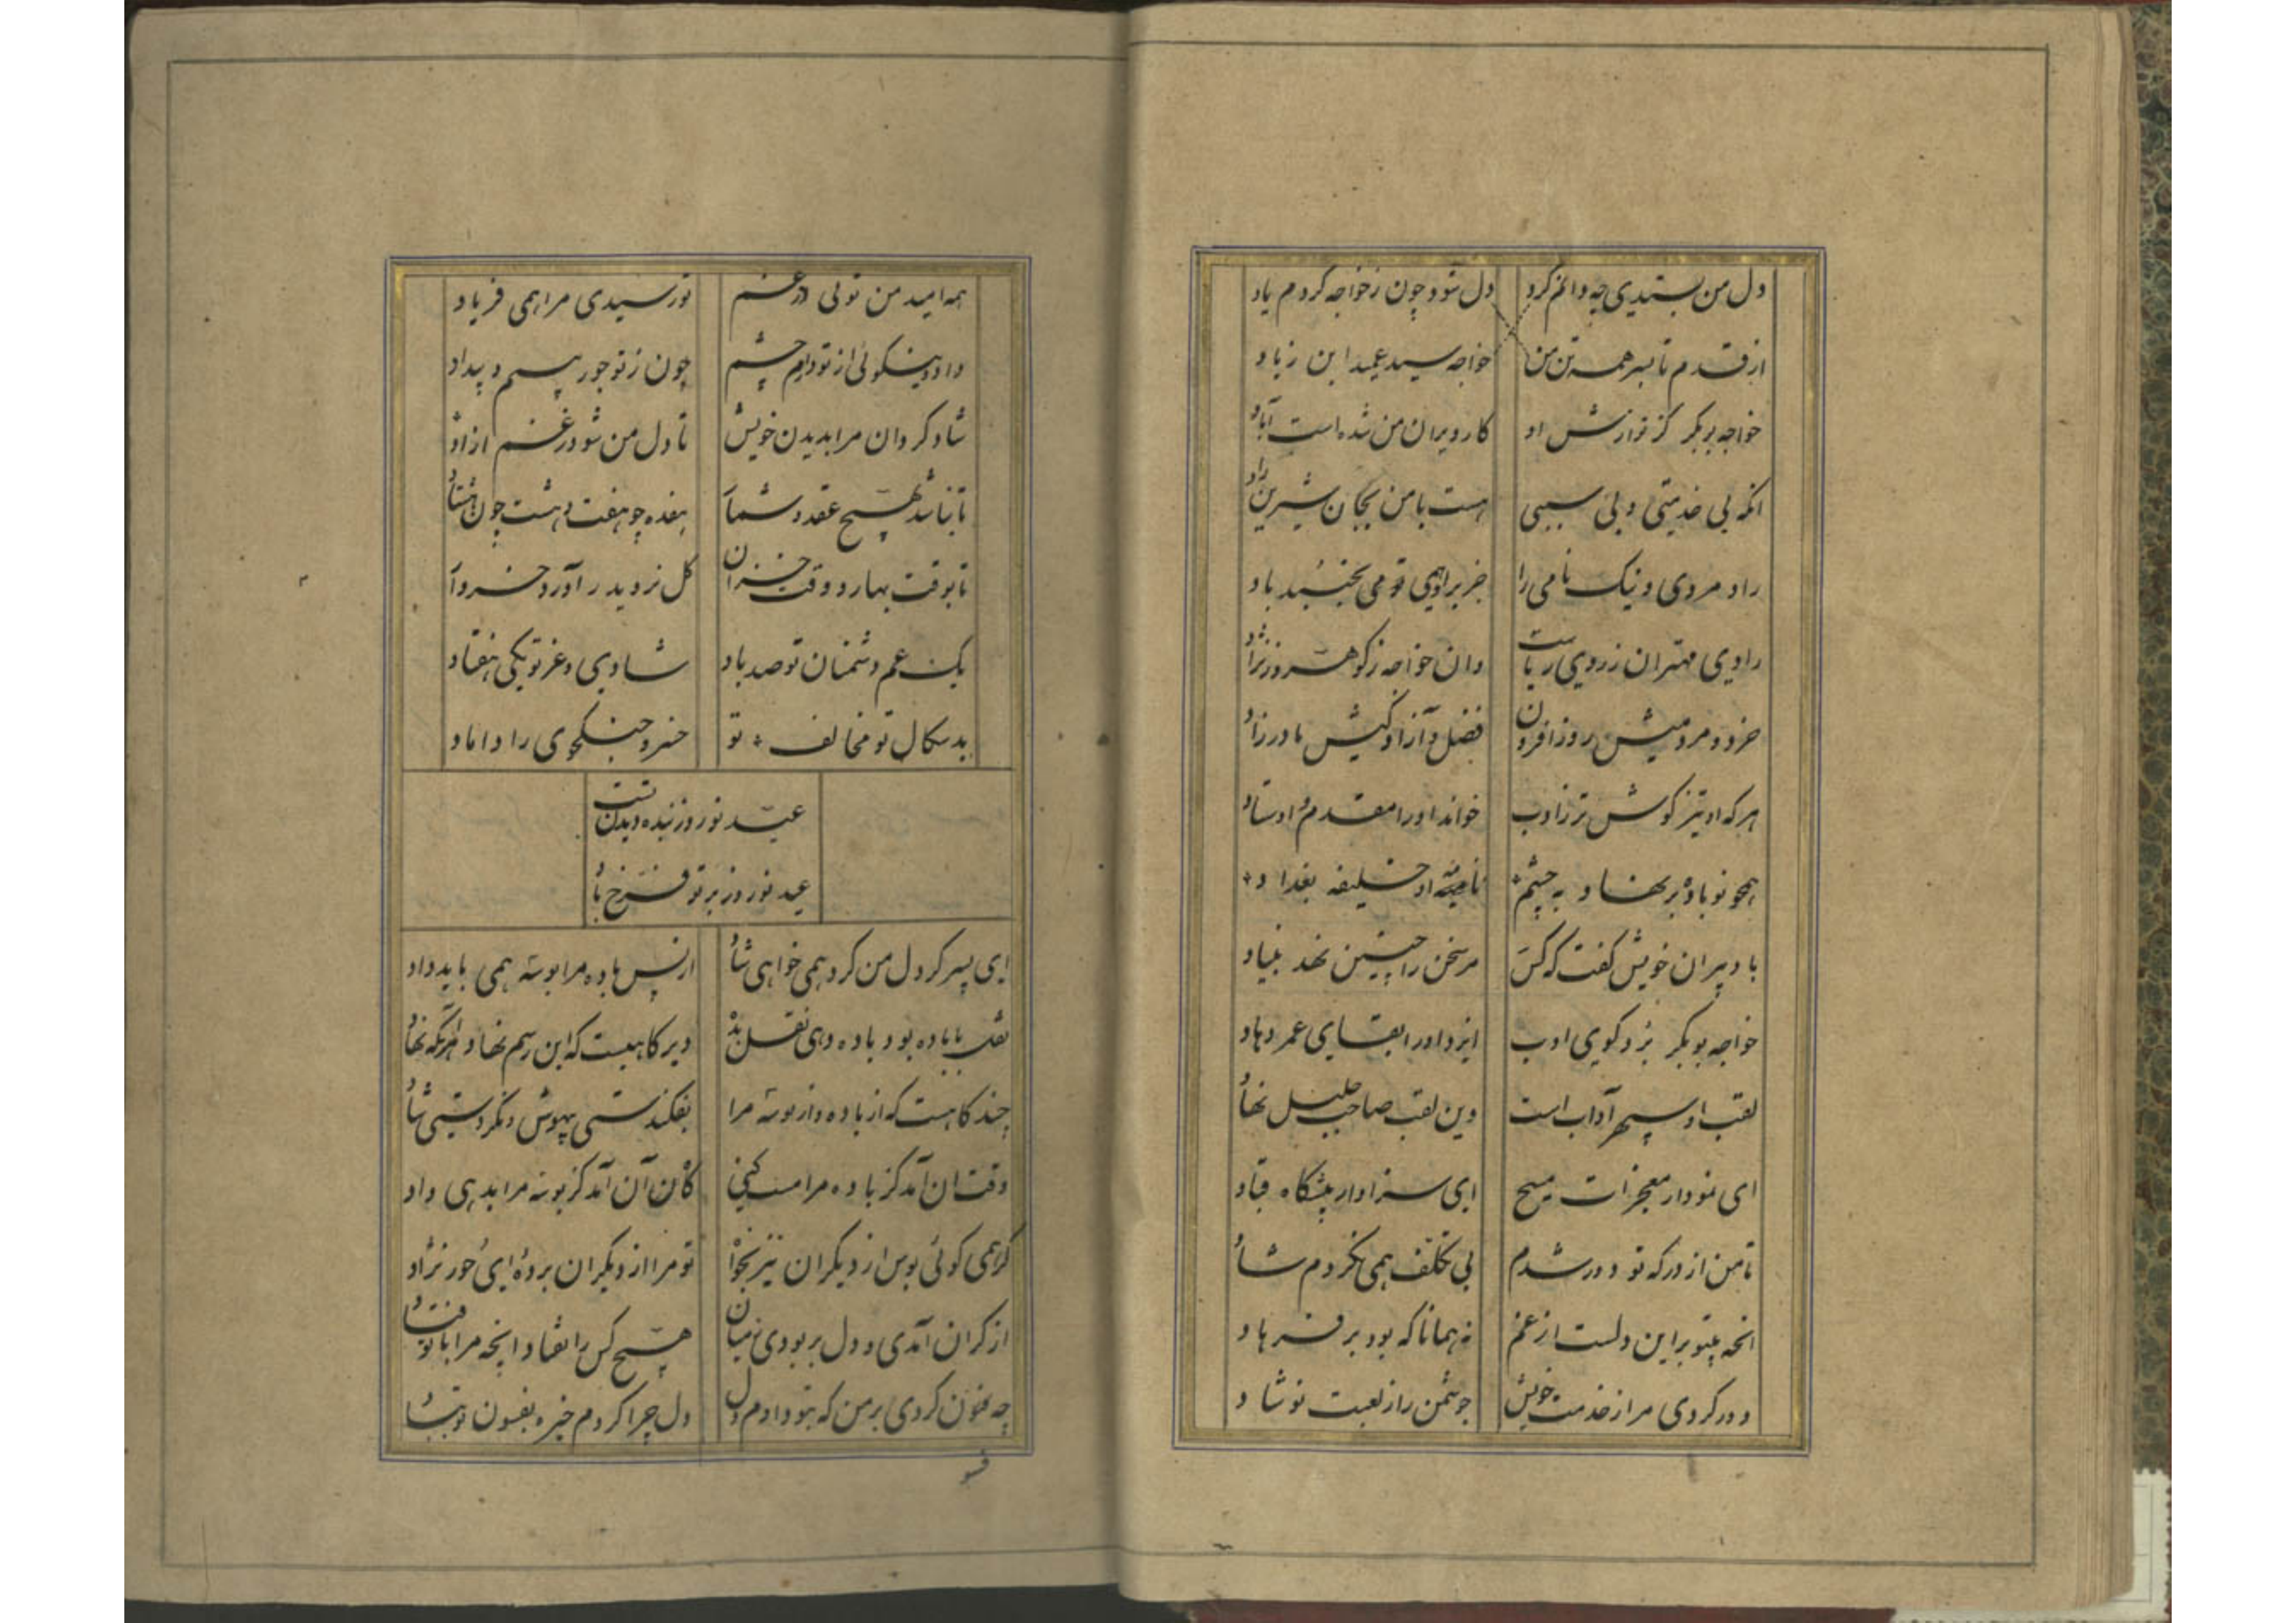 دل من بستدی چه دانم کرد دل شود چون زخواجه کردم یاد
از قدم تا بسر همه تن من خواجه سید عمید ابن زیاد
خواجه بوبکر کز نوازش او کار ویران من شده است آباد
انکه بی خدمتی و بی سببی هست با من بجان شیرین راد
راد مردی و نیک نامی را جز براوهی قومی بخنبید باد
رادی مهتران ز روی ریاست وان خواجه ز کوهر و ز نژاد
خرد و مردمیش روز افزون فضل و آزاد کیش مادر زاد
هر که او تیز کوش تر ز ادب خواند او را مقدم و اوستاد
همچو نو باوه برنهاد به چشم نامه او خلیفه بغداد
با دبیران خویش کفت که کس مر سخن را چنین نهد بنیاد
خواجه بوبکر نزد کوی ادب ایزد او را بقای عمر دهاد
لقب او سپهر آداب است وین لقب صاحب جلیل نهاد
ای نمودار معجزات مسیح ای سزاوار پیشگاه قباد
تا من از درکه تو دور شدم بی تکلف همی نکردم شاد
انچه بیتو براین دلست از غم نه همانا که بود بر فرهاد
دور کردی مرا ز خدمت خویش چو شمن را ز لعبت نوشاد
همه امید من توئی در غم تو رسیدی مرا همی فریاد
داد و نیکوئی از تو دارم چشم چون ز تو جور بینم و بیداد
شاد کردان مرا بدیدن خویش تا دل من شود ز غم ازاد
تا نباشد بهیچ عقد و شمار هفده چو هفت و هشت چون هشتاد
تا بوقت بهار و وقت خزان کل نروید در آورد خرداد
یک غم دشمنان تو صد باد شادی و عز تو یکی هفتاد
بدسکال تو مخالف تو خسرو جنکجوی را داماد
عید نوروز بنده دیدن تست
عید نوروز بر تو فرخ باد
ای پسر کر دل من کرد همی خواهی شاد از پس باده مرا بوسه همی باید داد
نقل با باده بود باده دهی نقل بده دیر کاهیست که این رسم نهاد انکه نهاد
چند کاهست که از باده و از بوسه مرا نفکندستی بیهوش و نکردستی شاد
وقت ان آمد کز باده مرا مست کنی کاه ان آمد کز بوسه مرا بدهی داد
کر همی کوئی بوس از دیکران نیز بخواه تو مرا از دیکران برده ای حور نژاد
از کران آمدی و دل بربودی ز میان هیچ کس را نفتاد انچه مرا با تو فتاد
چه فسون کردی بر من که بتو دادم دل دل چرا کردم خیره بفسون تو بباد
فسو